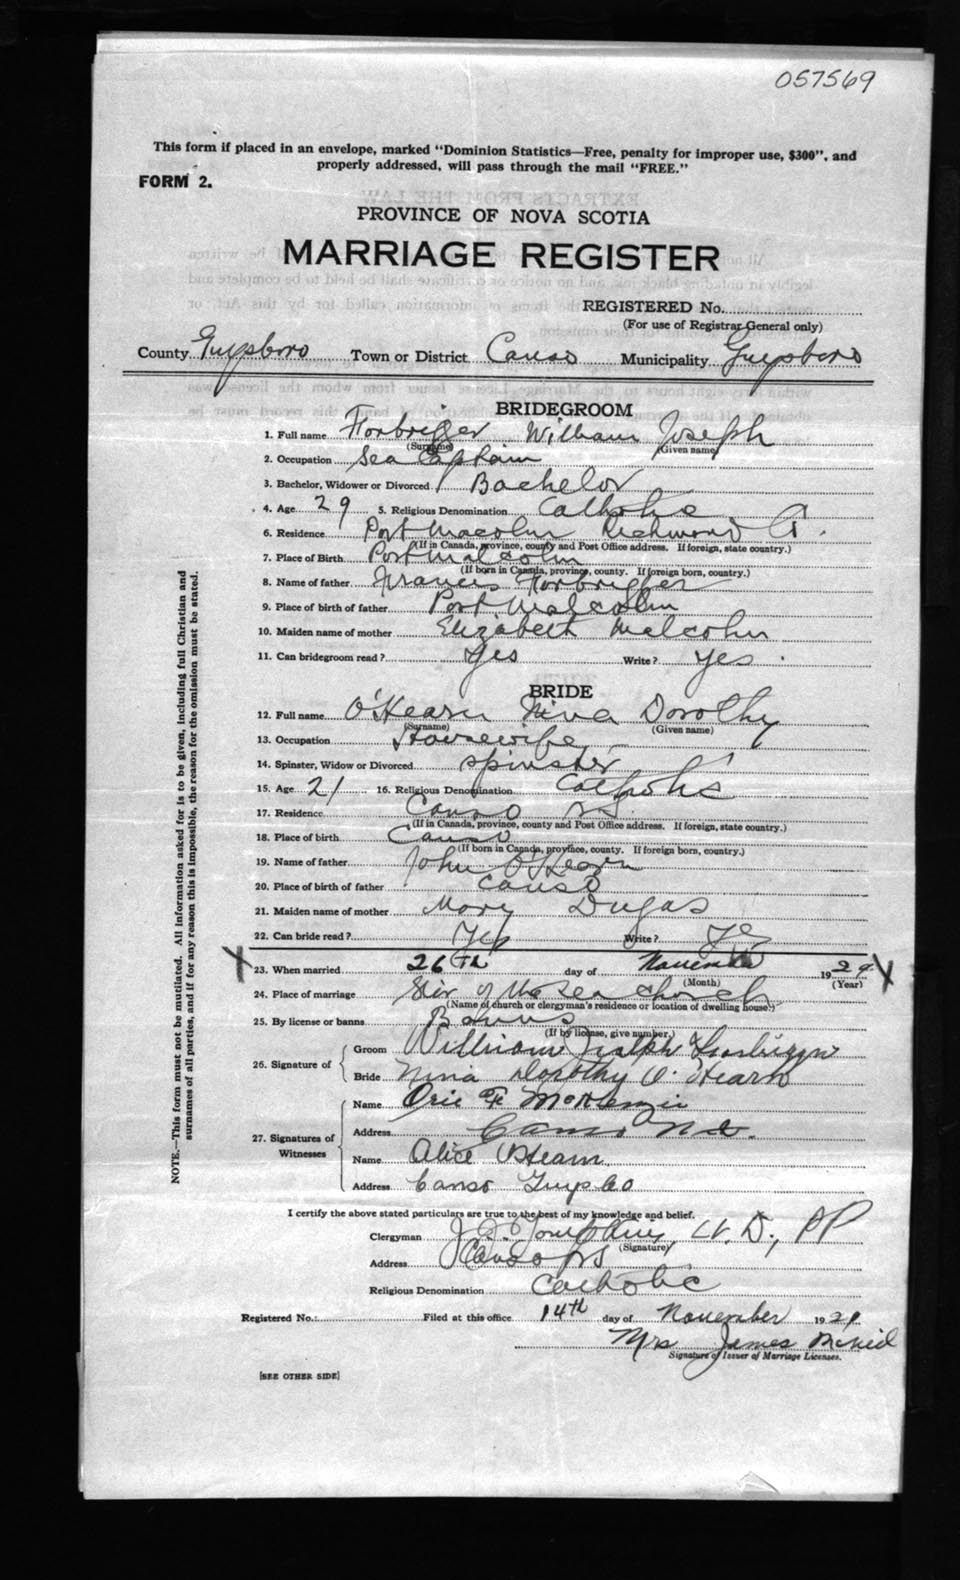 057569
This form if placed in an envelope, marked "Dominion Statistics—Free, penalty for improper use, $300", and
properly addressed, will pass through the mail "FREE."
FORM 2.
PROVINCE OF NOVA SCOTIA
MARRIAGE REGISTER
REGISTERED No.
(For use of Registrar General only)
County Guysboro Town or District Canso Municipality Guysboro
BRIDEGROOM
1. Full name Forbrigger William Joseph
(Surname) (Given name)
2. Occupation Sea Captain
3. Bachelor, Widower or Divorced Bachelor
4. Age 29 5. Religious Denomination Catholic
6. Residence Port Malcolm Richmond
(If in Canada, province, county and Post Office address. If foreign, state country.)
7. Place of Birth Port Malcolm
(If born in Canada, province, county. If foreign born, country.)
8. Name of father Francis Forbrigger
9. Place of birth of father Port Malcolm
10. Maiden name of mother Elizabeth Malcolm
11. Can bridegroom read? Yes Write? Yes
BRIDE
12. Full name O'Hearn Nina Dorothy
(Surname) (Given name)
13. Occupation Housewife
14. Spinster, Widow or Divorced spinster
15. Age 21 16. Religious Denomination Catholic
17. Residence Canso NS
(If in Canada, province, county and Post Office address. If foreign, state country.)
18. Place of birth Canso
(If born in Canada, province, county. If foreign born, country.)
19. Name of father John O'Hearn
20. Place of birth of father Canso
21. Maiden name of mother Mary Dugas
22. Can bride read? Yes Write? Yes
X 23. When married 26th day of November 1929 X
(Month) (Year)
24. Place of marriage Star of the Sea Church
(Name of church or clergyman's residence or location of dwelling house.)
25. By license or banns Banns
(If by license, give number.)
26. Signature of Groom William Joseph
Bride Nina Dorothy O'Hearn
27. Signatures of Witnesses
Name McKenzie
Address Canso N.S.
Name Alice O'Hearn
Address Canso Guys Co
I certify the above stated particulars are true to the best of my knowledge and belief.
Clergyman J.J. Tompkins, P.P.
(Signature)
Address Canso NS
Religious Denomination Catholic
Registered No.: Filed at this office 14th day of November 192
Mrs James McNeil
Signature of Issuer of Marriage Licenses.
[SEE OTHER SIDE]
NOTE.—This form must not be mutilated. All information asked for is to be given, including full Christian and
surnames of all parties, and if for any reason this is impossible, the reason for the omission must be stated.